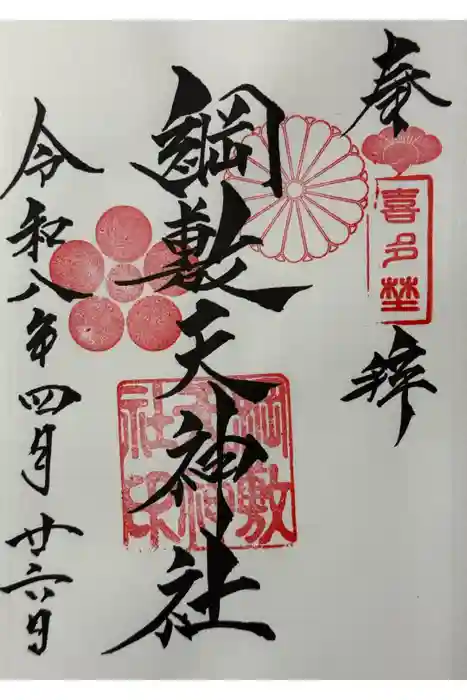 奉拝
喜多埜
綱敷天神社
綱敷天神社印
令和八年四月廿六日